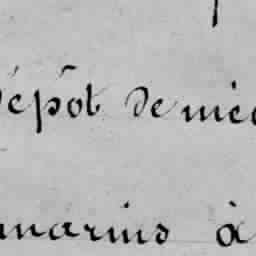 dépôt de méd
marins à